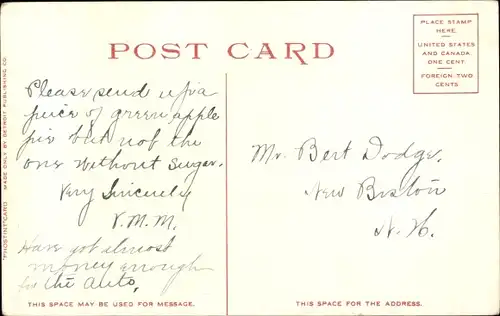 POST CARD
PLACE STAMP
HERE.
UNITED STATES
AND CANADA.
ONE CENT.
FOREIGN TWO
CENTS
"PHOSTINT" CARD MADE ONLY BY DETROIT PUBLISHING CO.
Please send up a
piece of green apple
pie but not the
one without sugar.
Very Sincerely
V. M. M.
Have got almost
money enough
for the auto.
Mr. Bert Dodge,
New Boston
N. H.
THIS SPACE MAY BE USED FOR MESSAGE.
THIS SPACE IS FOR THE ADDRESS.